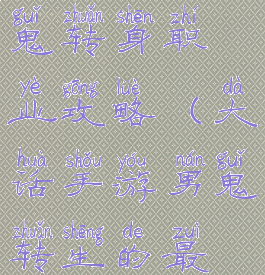 guǐ zhuǎn shēn zhí
鬼转身职
yè gōng lüè dà
业攻略(大
huà shǒu yóu nán guǐ
话手游男鬼
zhuǎn shēng de zuì
转生的最